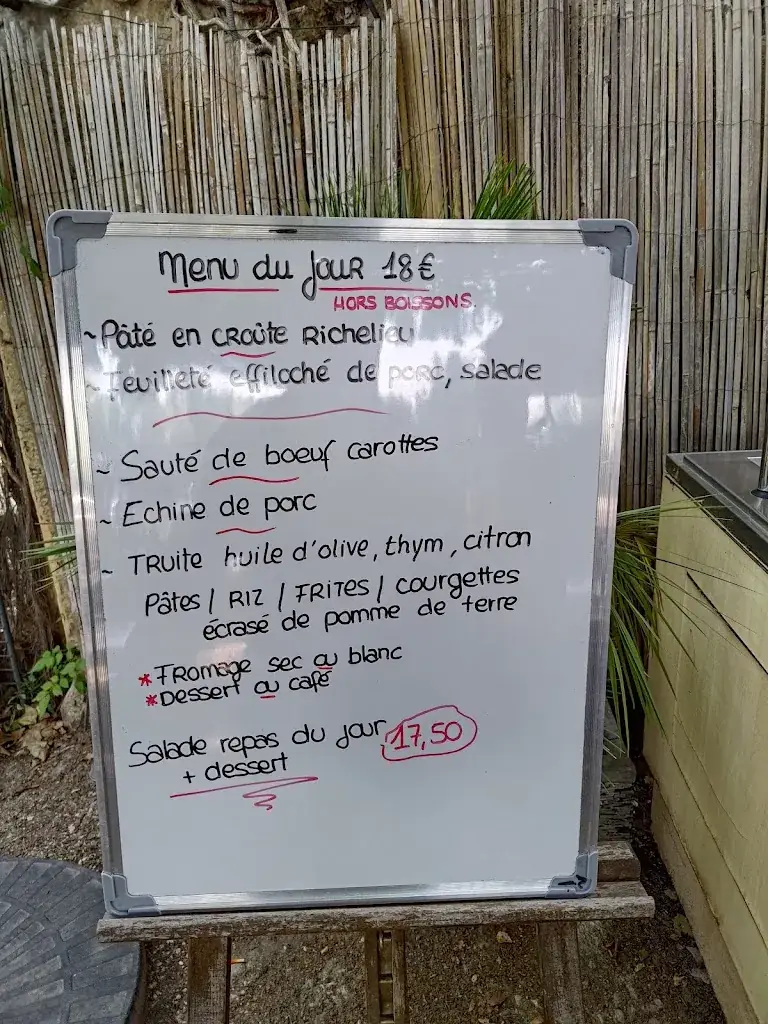 Menu du jour 18€
HORS BOISSONS
~ Pâté en croûte Richelieu
~ Feuilleté effiloché de porc, salade
~ Sauté de boeuf carottes
~ Echine de porc
~ Truite huile d'olive, thym, citron
Pâtes / Riz / Frites / courgettes
écrasé de pomme de terre
*Fromage sec ou blanc
*Dessert ou café
Salade repas du jour 17,50
+ dessert